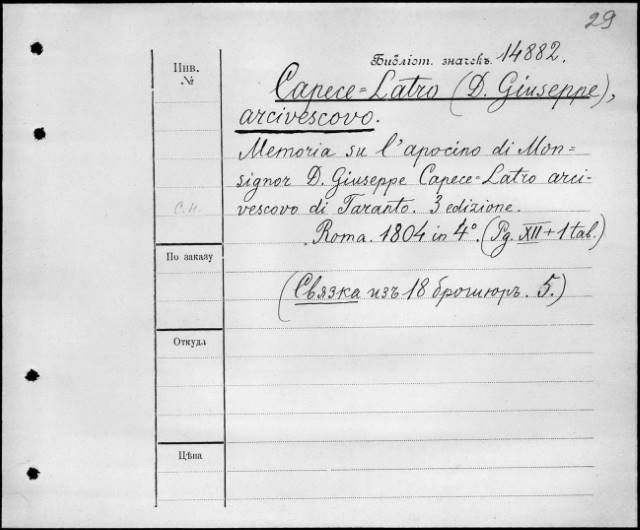 29
Библіот. значекъ. 14882.
Инв.
№
Capece=Latro (D. Giuseppe),
arcivescovo.
Memoria su l'apocino di Mon=
signor D. Giuseppe Capece=Latro arci-
vescovo di Taranto. 3 edizione.
с.н.
Roma. 1804 in 4°. (Pg. XII + 1 tab.)
По заказу
(Связка изъ 18 брошюръ. 5.)
Откуда
Цѣна